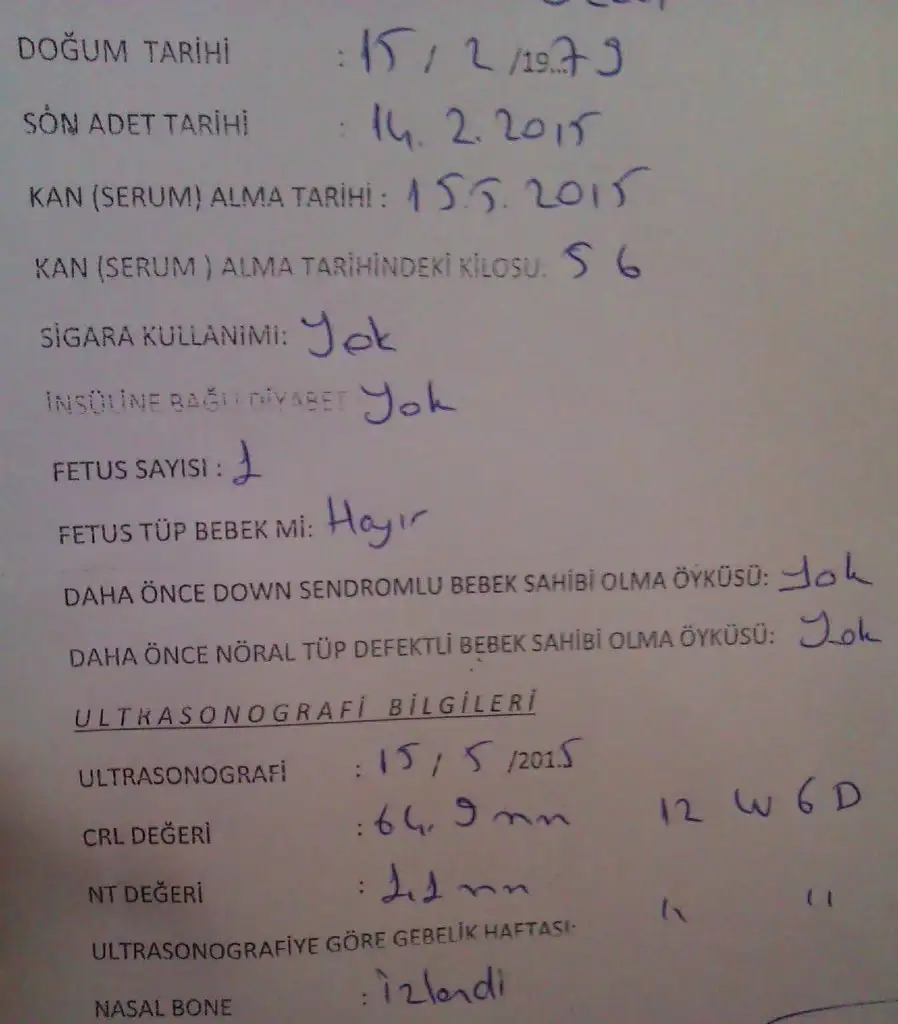 DOĞUM TARİHİ : 15 / 2 /19...79
SON ADET TARİHİ : 14. 2. 2015
KAN (SERUM) ALMA TARİHİ : 15.5. 2015
KAN (SERUM ) ALMA TARİHİNDEKİ KİLOSU: 56
SİGARA KULLANIMI: Yok
İNSÜLİNE BAĞLI DİYABET Yok
FETUS SAYISI : 1
FETUS TÜP BEBEK Mİ: Hayır
DAHA ÖNCE DOWN SENDROMLU BEBEK SAHİBİ OLMA ÖYKÜSÜ: Yok
DAHA ÖNCE NÖRAL TÜP DEFEKTLİ BEBEK SAHİBİ OLMA ÖYKÜSÜ: Yok
ULTRASONOGRAFİ BİLGİLERİ
ULTRASONOGRAFİ : 15 / 5 /2015
CRL DEĞERİ : 64,9 mm 12 W 6 D
NT DEĞERİ : 1,1 mm
ULTRASONOGRAFİYE GÖRE GEBELİK HAFTASI: " "
NASAL BONE : İzlendi